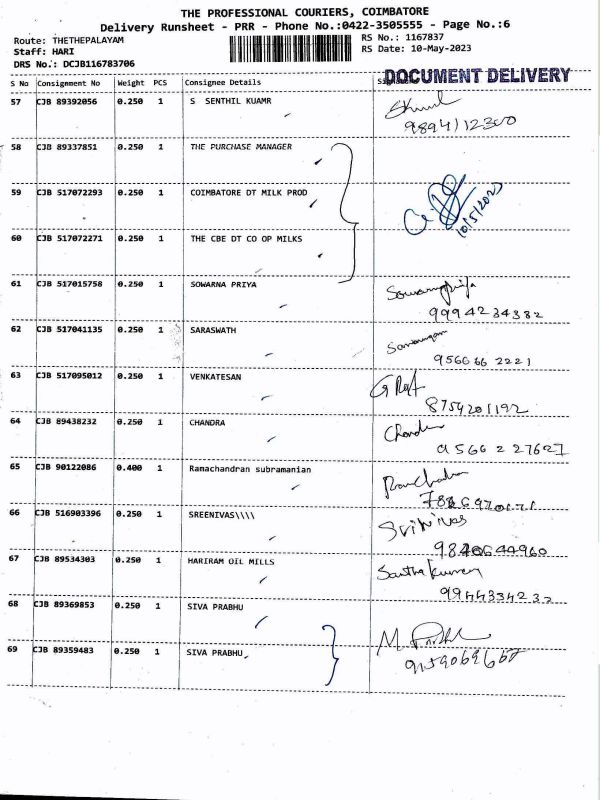 THE PROFESSIONAL COURIERS, COIMBATORE
Delivery Runsheet - PRR - Phone No.:0422-3505555 - Page No.:6
Route: THETHEPALAYAM RS No.: 1167837
Staff: HARI RS Date: 10-May-2023
DRS No.: DCJB116783706
DOCUMENT DELIVERY
S No Consignment No Weight PCS Consignee Details
57 CJB 89392056 0.250 1 S SENTHIL KUAMR
9894112300
58 CJB 89337851 0.250 1 THE PURCHASE MANAGER
59 CJB 517072293 0.250 1 COIMBATORE DT MILK PROD
10/5/2023
60 CJB 517072271 0.250 1 THE CBE DT CO OP MILKS
61 CJB 517015758 0.250 1 SOWARNA PRIYA
9994234332
62 CJB 517041135 0.250 1 SARASWATH
956666 2221
63 CJB 517095012 0.250 1 VENKATESAN
8754201192
64 CJB 89438232 0.250 1 CHANDRA
Chandra
9566 2 27627
65 CJB 90122086 0.400 1 Ramachandran subramanian
66 CJB 516903396 0.250 1 SREENIVAS\\\\
Srinivas
9840644960
67 CJB 89534303 0.250 1 HARIRAM OIL MILLS
9944334232
68 CJB 89369853 0.250 1 SIVA PRABHU
69 CJB 89359483 0.250 1 SIVA PRABHU